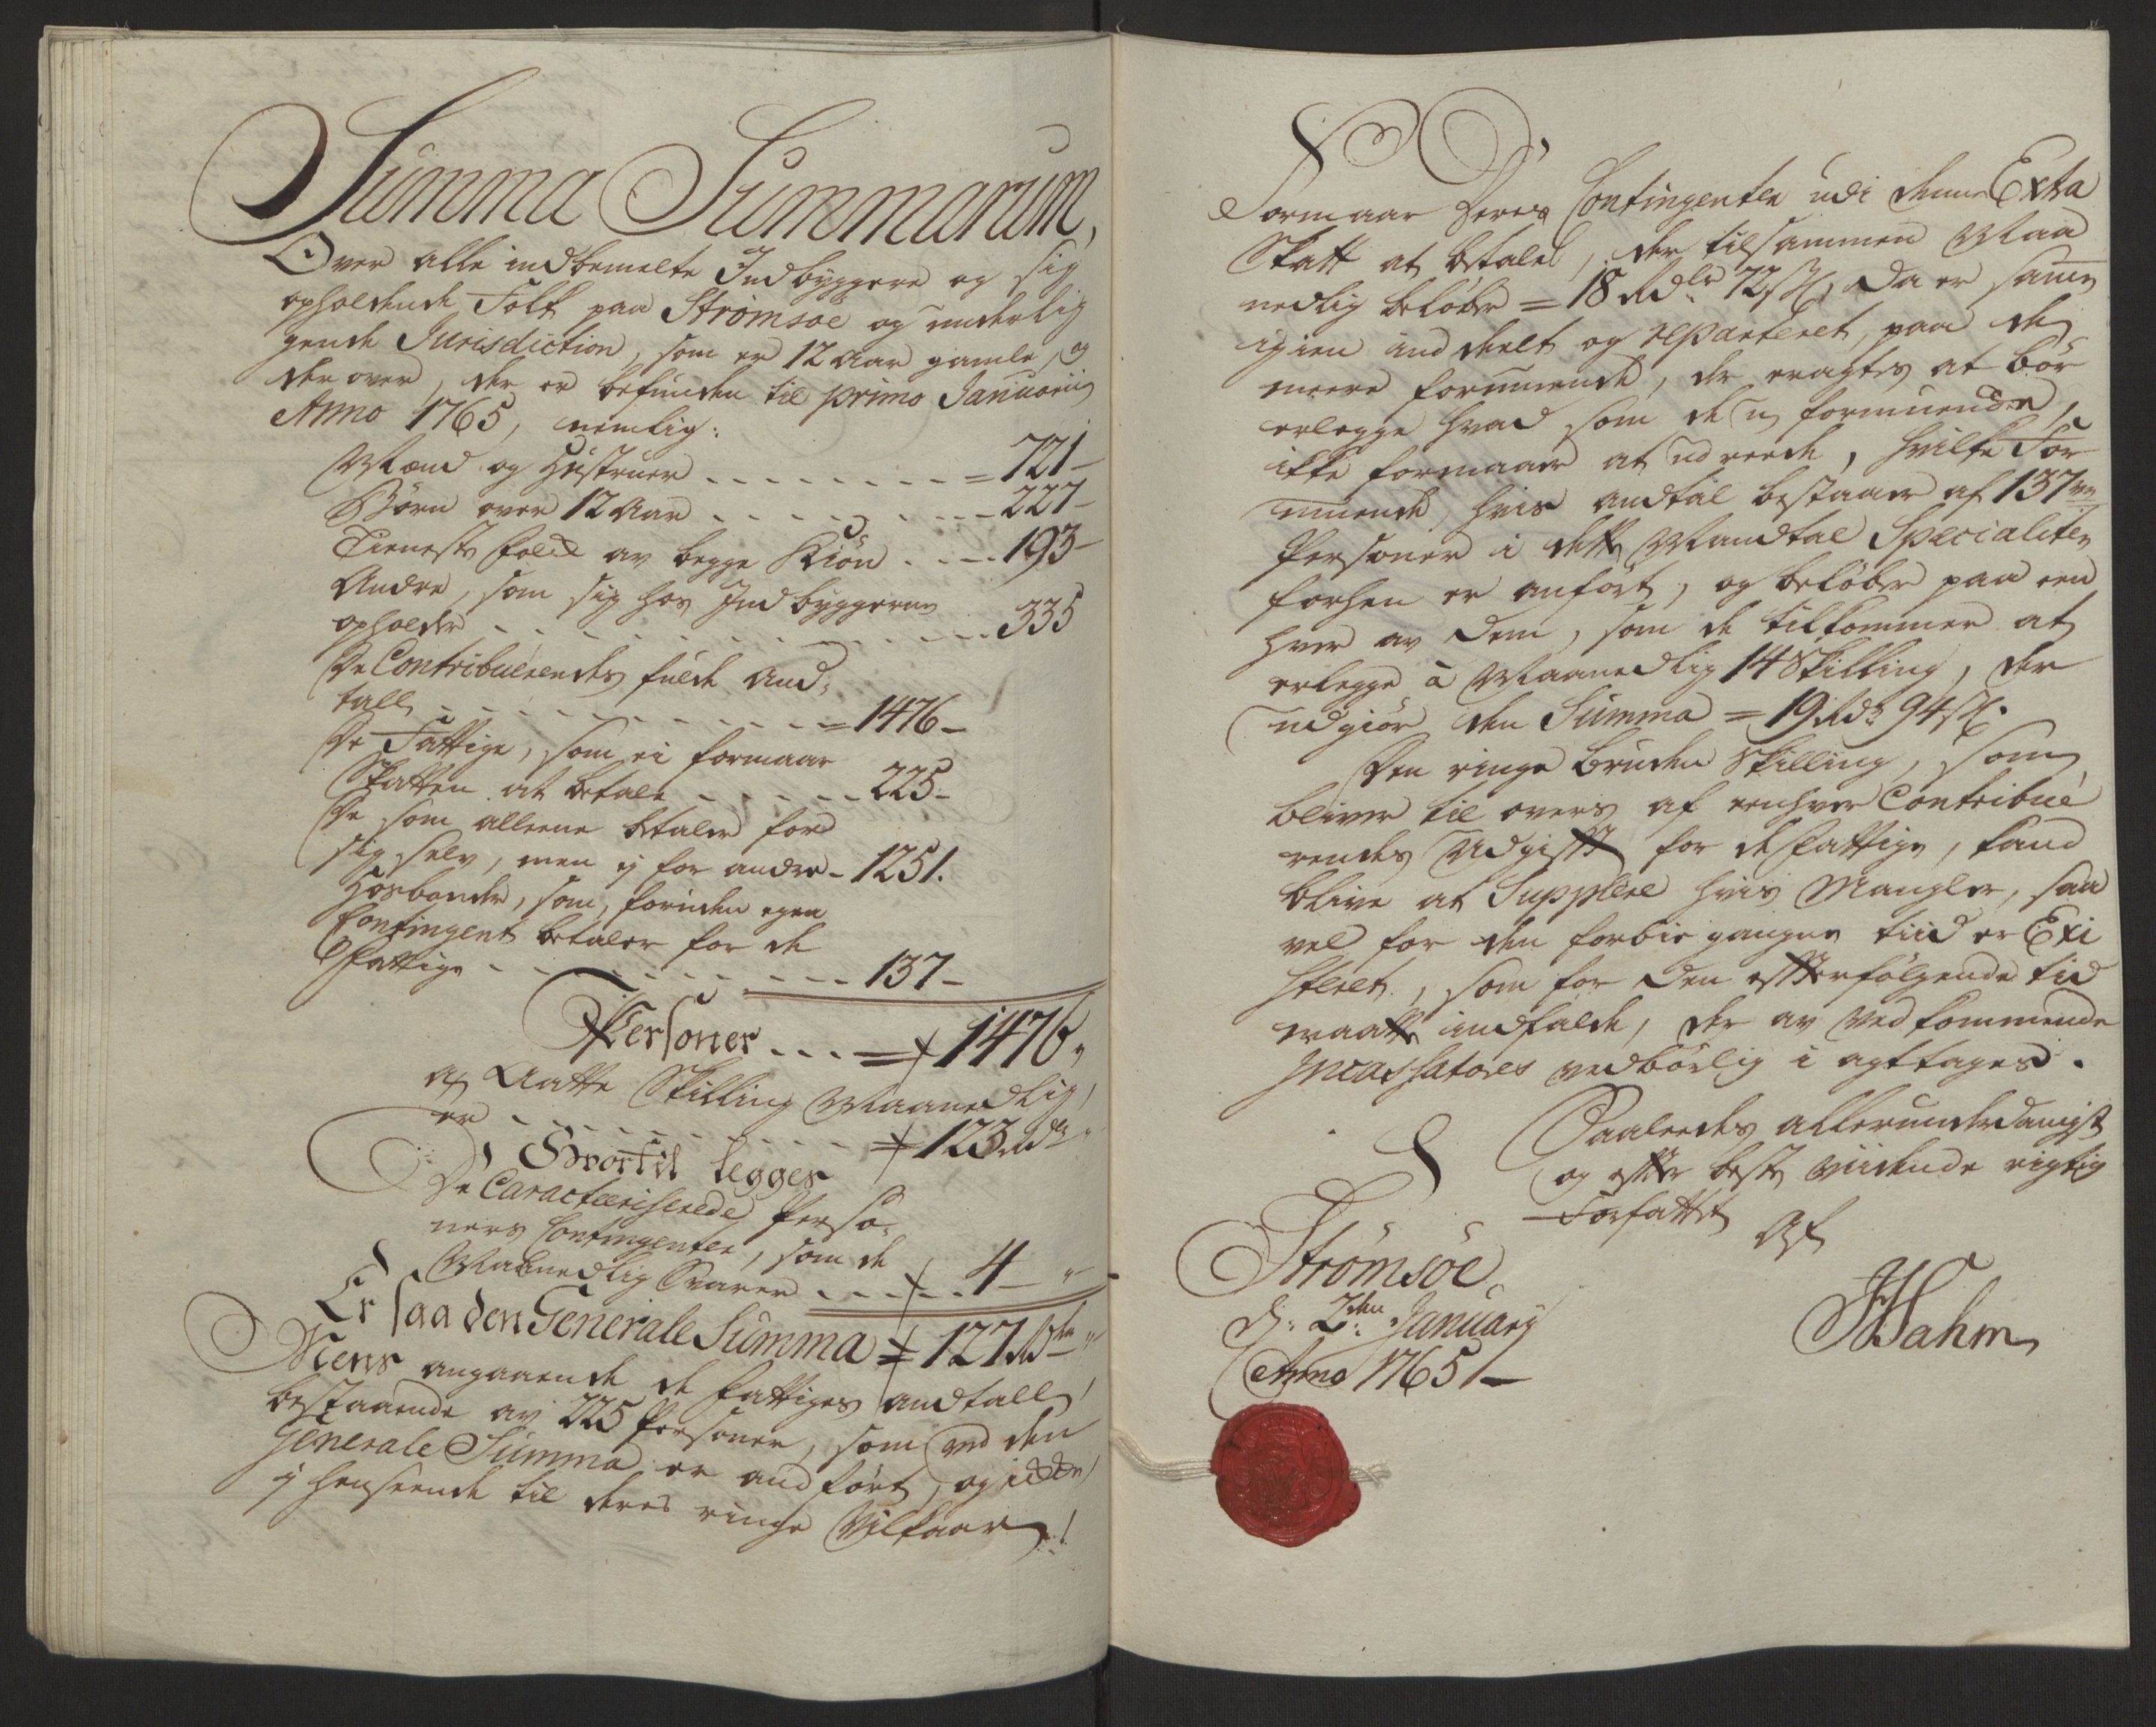 Summa Summarum,
Over alle indbemelte Indbyggere og sig
opholdende Folk paa Strömsöe og underlig
gende Jurisdiction, som er 12 Aar gamle, og
der over, der er befunden til primo Januarij
Anno 1765, nemlig:
Mænd og Hustruer - - - - - - - - = 721 -
Börn over 12 Aar - - - - - - - - - 227 -
Tieneste folck av begge Kiön - - - - 193 -
Andre, som sig hos Indbyggerne
opholder - - - - - - - - - - - - 335
De Contribuerendes fulde And-
tall - - - - - - - - - - - = 1476 -
De Fattige, som ei formaar
Skatten at betale - - - - - - 225 -
De som alleene betaler for
sig selv, men ej for andre - 1251.
Hosbonder, som, foruden egen
Contingent betaler for de
Fattige - - - - - - - - - - 137 -
Personer - - - = 1476,
a Aatte Skilling Maanedlig,
er - - - - - - - - - - - = 123 Rdr "
Hvortil legges
De Caracteriserede Perso-
ners Contingenter, som de
Maanedlig Svarer - - - - - 4 - "
Er saa den Generale Summa = 127 Rdr "
Mens angaaende de fattiges andtall,
bestaaende av 225 Personer, som ved den
Generale Summa er andfört, og icke
i henseende til deres ringe Vilkaar
Formaar Deres Contingenter udi denne Exta
Skatt at betale, der tilsammen Maa
nedlig belöber = 18 Rdlr 72 s, Da er samme
igien ind deelt og repartéret, paa de
meere formuende, der eragtes at bör
erlegge hvad som de u formuende,
ikke formaar at udreede, hvilke For
muende, hvis andtal bestaaer af 137 ve
Personer i dette Mandtal Specialiter
forhen er anfört, og belöber paa een
hver av dem, som de tilkommer at
erlegge à Maanedlig 14 Skilling, der
udgiör den Summa = 19 Rdr 94 s.
Den ringe bruden Skilling, som
bliver til overs af eenhver Contribue
rendes Udgift for de fattige, kand
blive at Supplere hvis Mangler, saa
vel for den forbie gangne tiid er Exi
steret, som for den efterfölgende tid
maatte indfalde, der av vedkommende
Incassatores vedbörlig i agttages.
Saaleedes allerunderdanigst
og efter beste vidende rigtig
Forfattet
Af
Strömsöe
d: 2den January
Anno 1765 -
JHahm